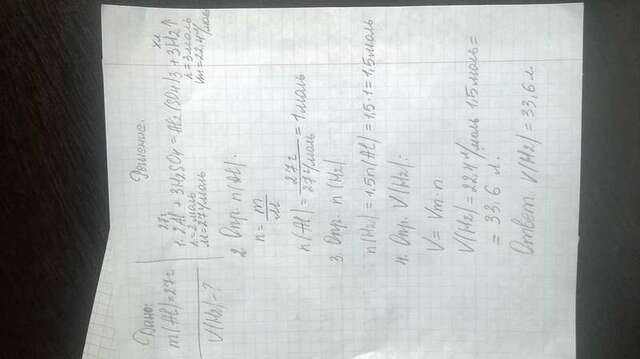 Дано:
m(Al)=27г
V(H2)=?
Решение.
27г хл
1. 2Al + 3H2SO4 = Al2(SO4)3 + 3H2↑
n=2моль n=3моль
M=27г/моль Vm=22,4л/моль
2. Опр. n(Al):
n = m/M
n(Al) = 27г/27г/моль = 1моль
3. Опр. n(H2)
n(H2)=1,5n(Al)=1,5·1=1,5моль
4. Опр. V(H2):
V = Vm n
V(H2)=22,4л/моль 1,5моль=
= 33,6 л.
Ответ: V(H2)=33,6л.